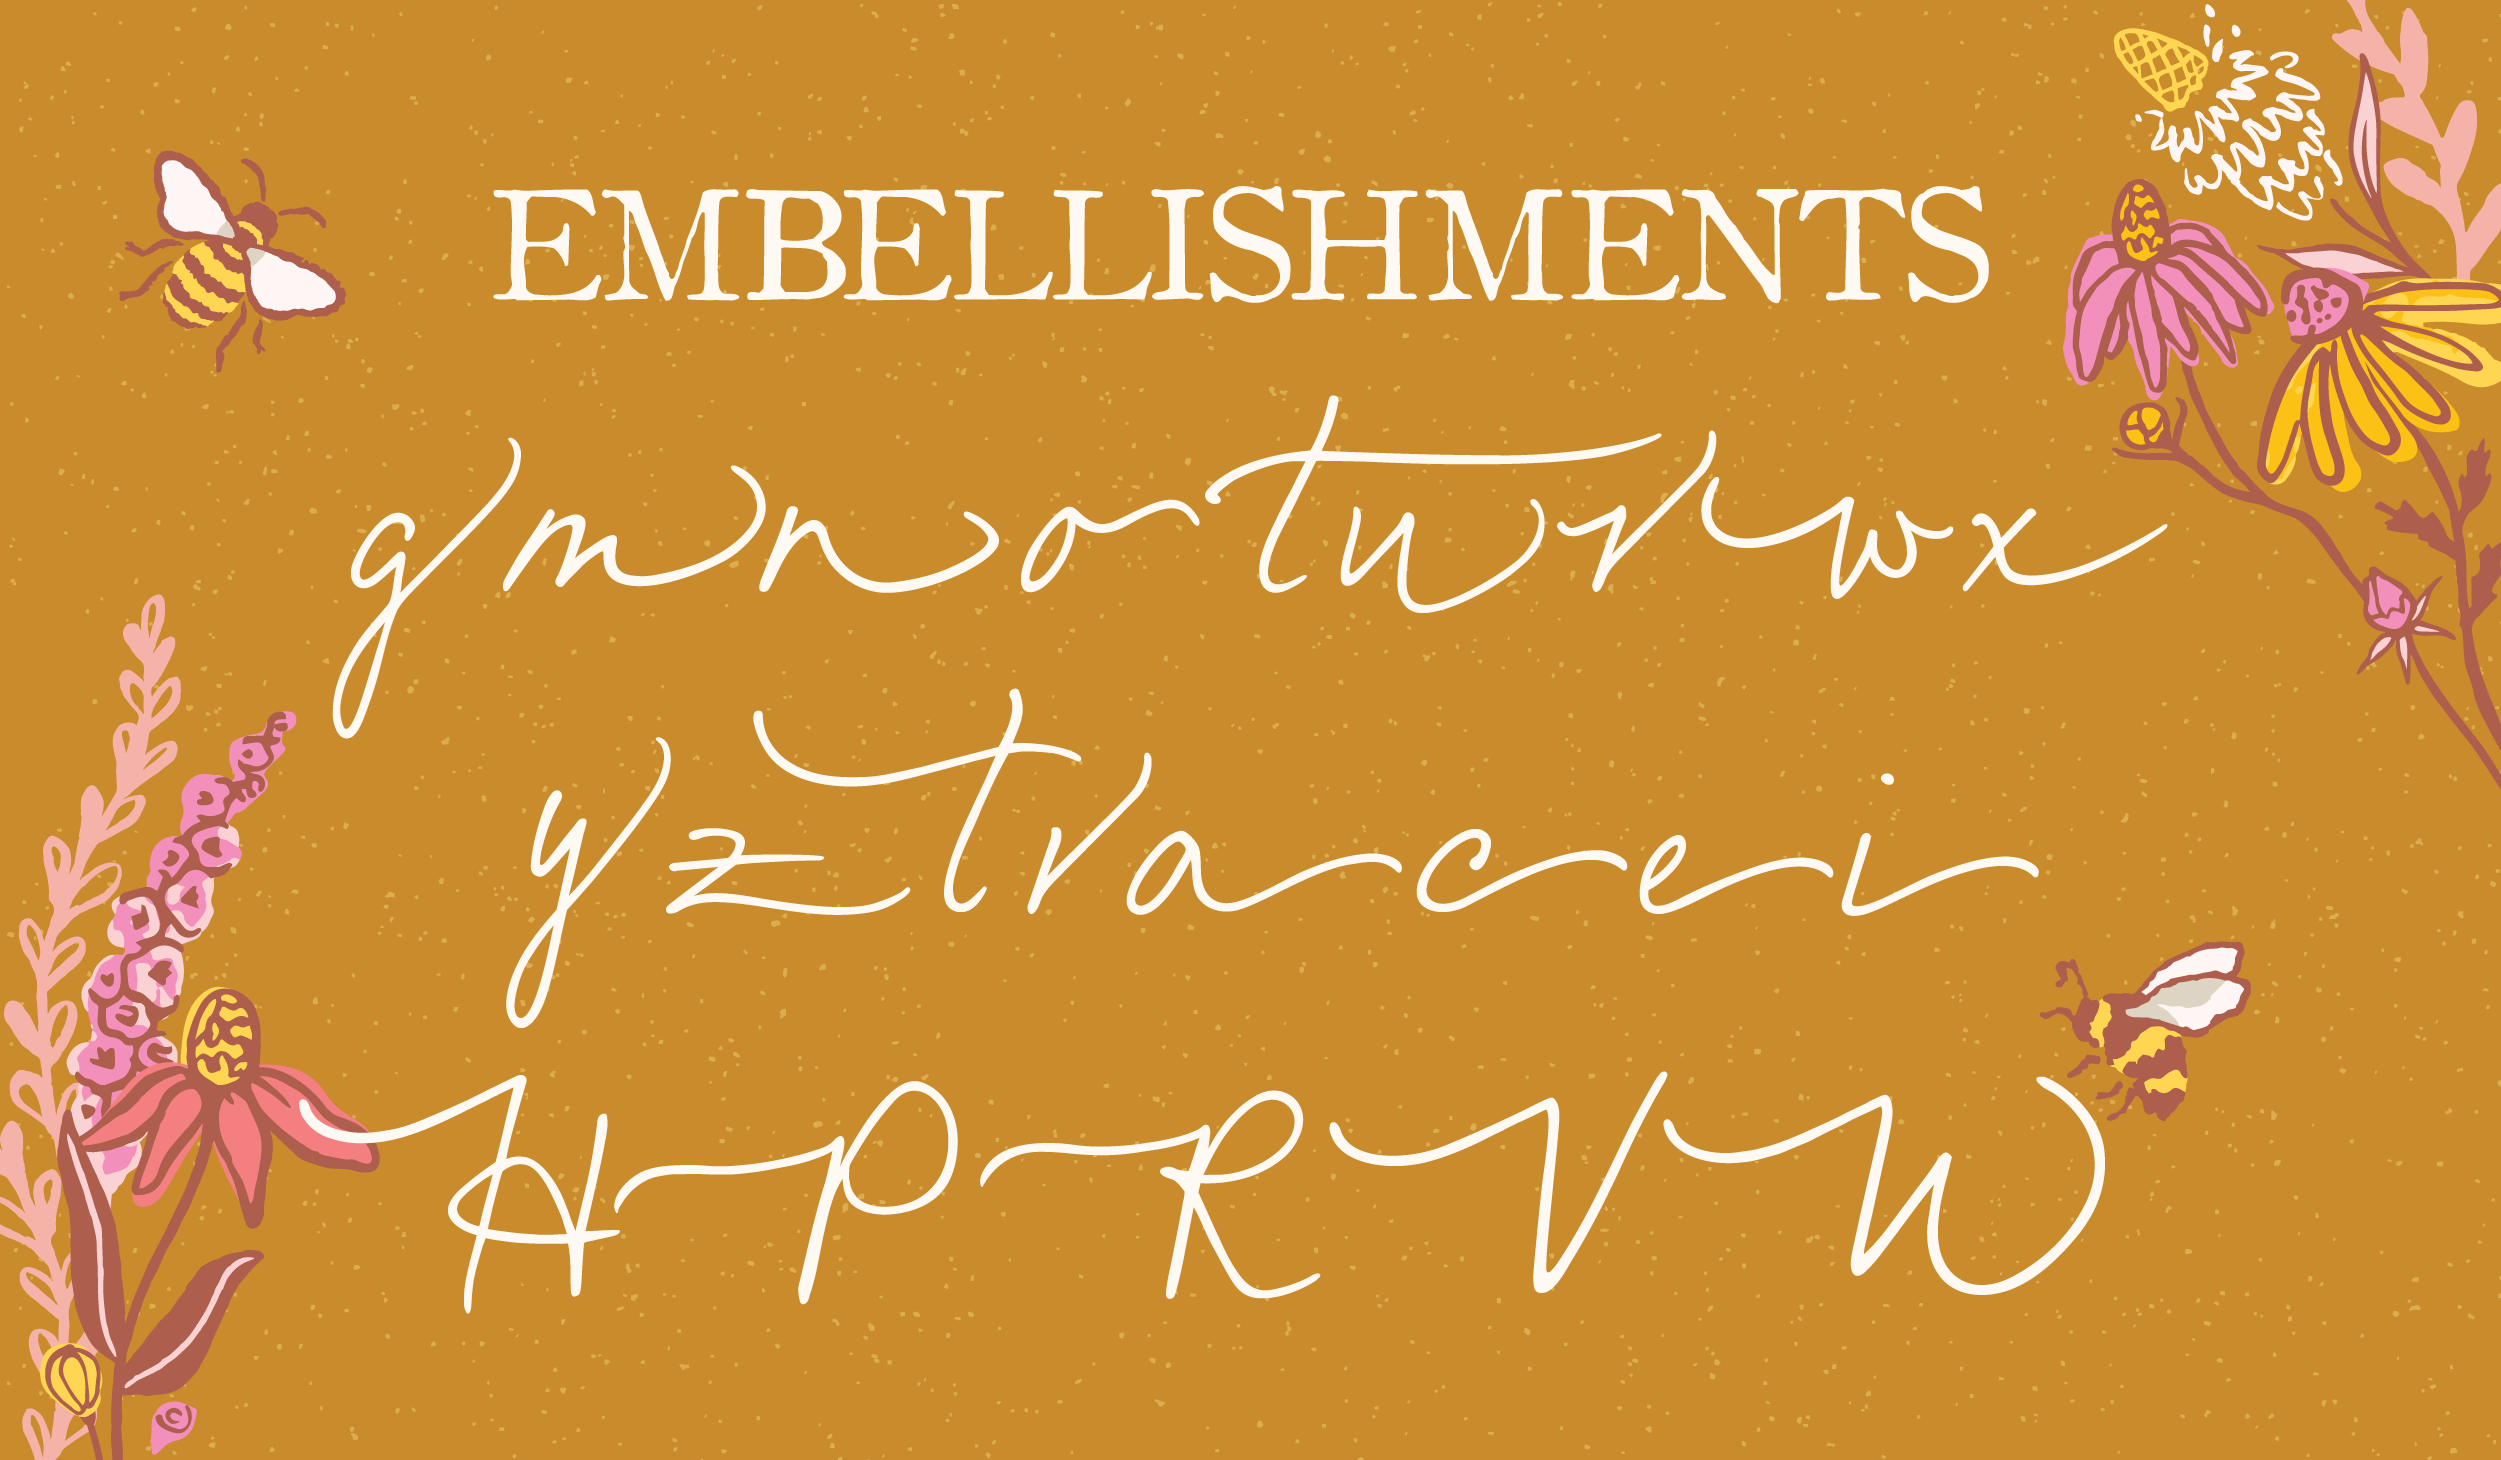 EMBELLISHMENTS
g m n o t u v w x
y z t v a c e i
A P R V W